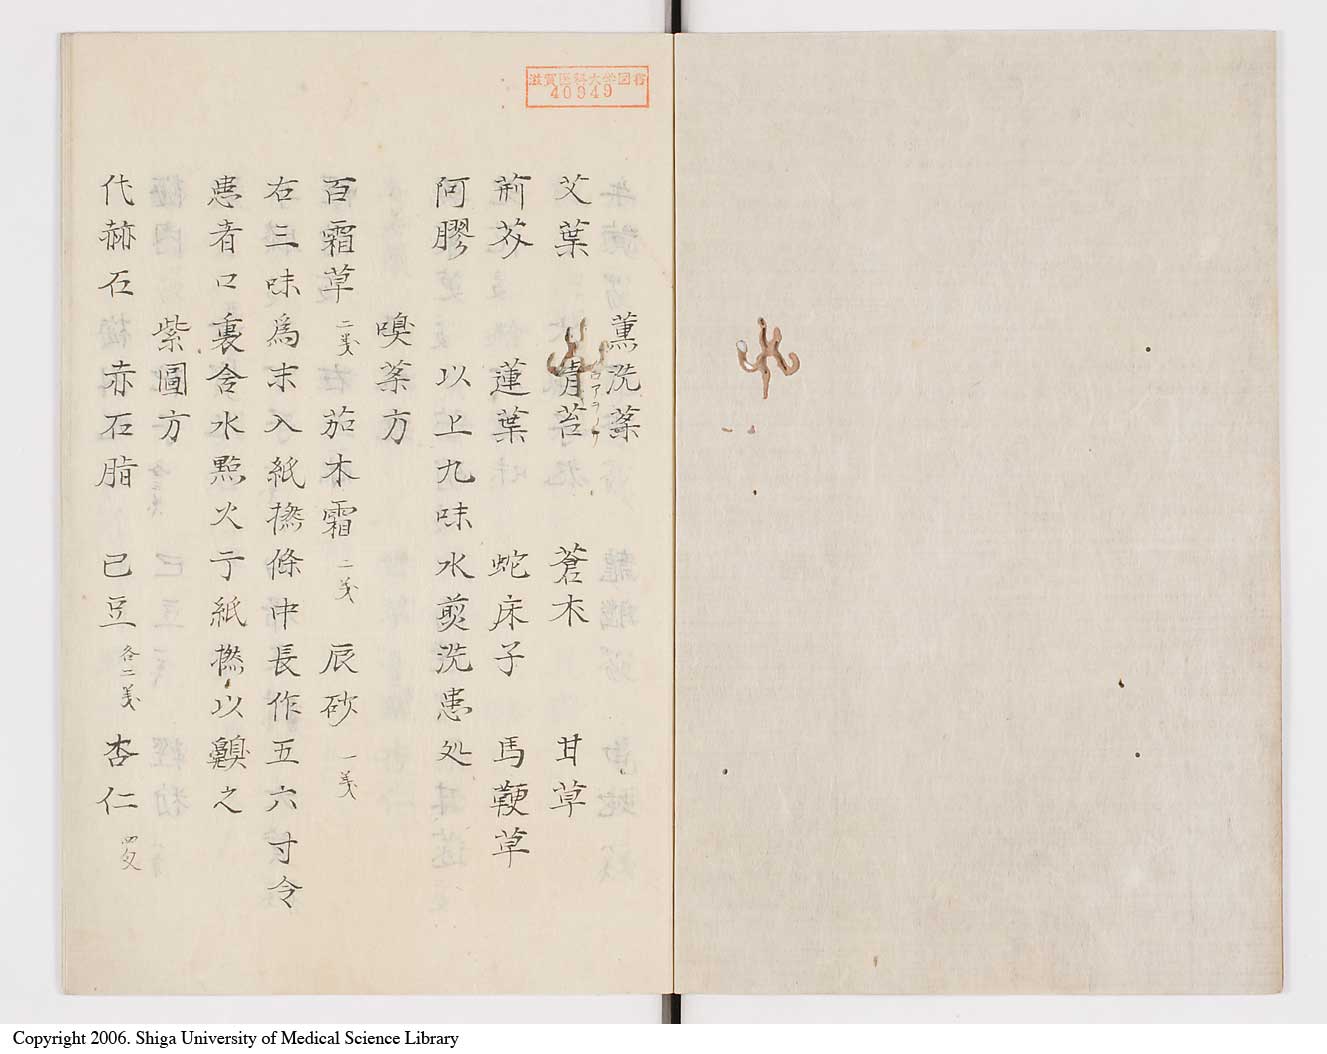 滋賀医科大学図書
40949
薰洗藥
艾葉 青苔 アヲノリ 蒼木 甘草
荊芥 蓮葉 蛇床子 馬鞕草
阿膠 以上九味水煎洗患処
嗅藥方
百霜草 二戔 茄木霜 二戔 辰砂 一戔
右三味為末入紙撚條中長作五六寸令
患者口裏含水點火于紙撚以鼻嗅之
紫圓方
代赫石 赤石脂 巳豆 各二戔 杏仁
Copyright 2006. Shiga University of Medical Science Library